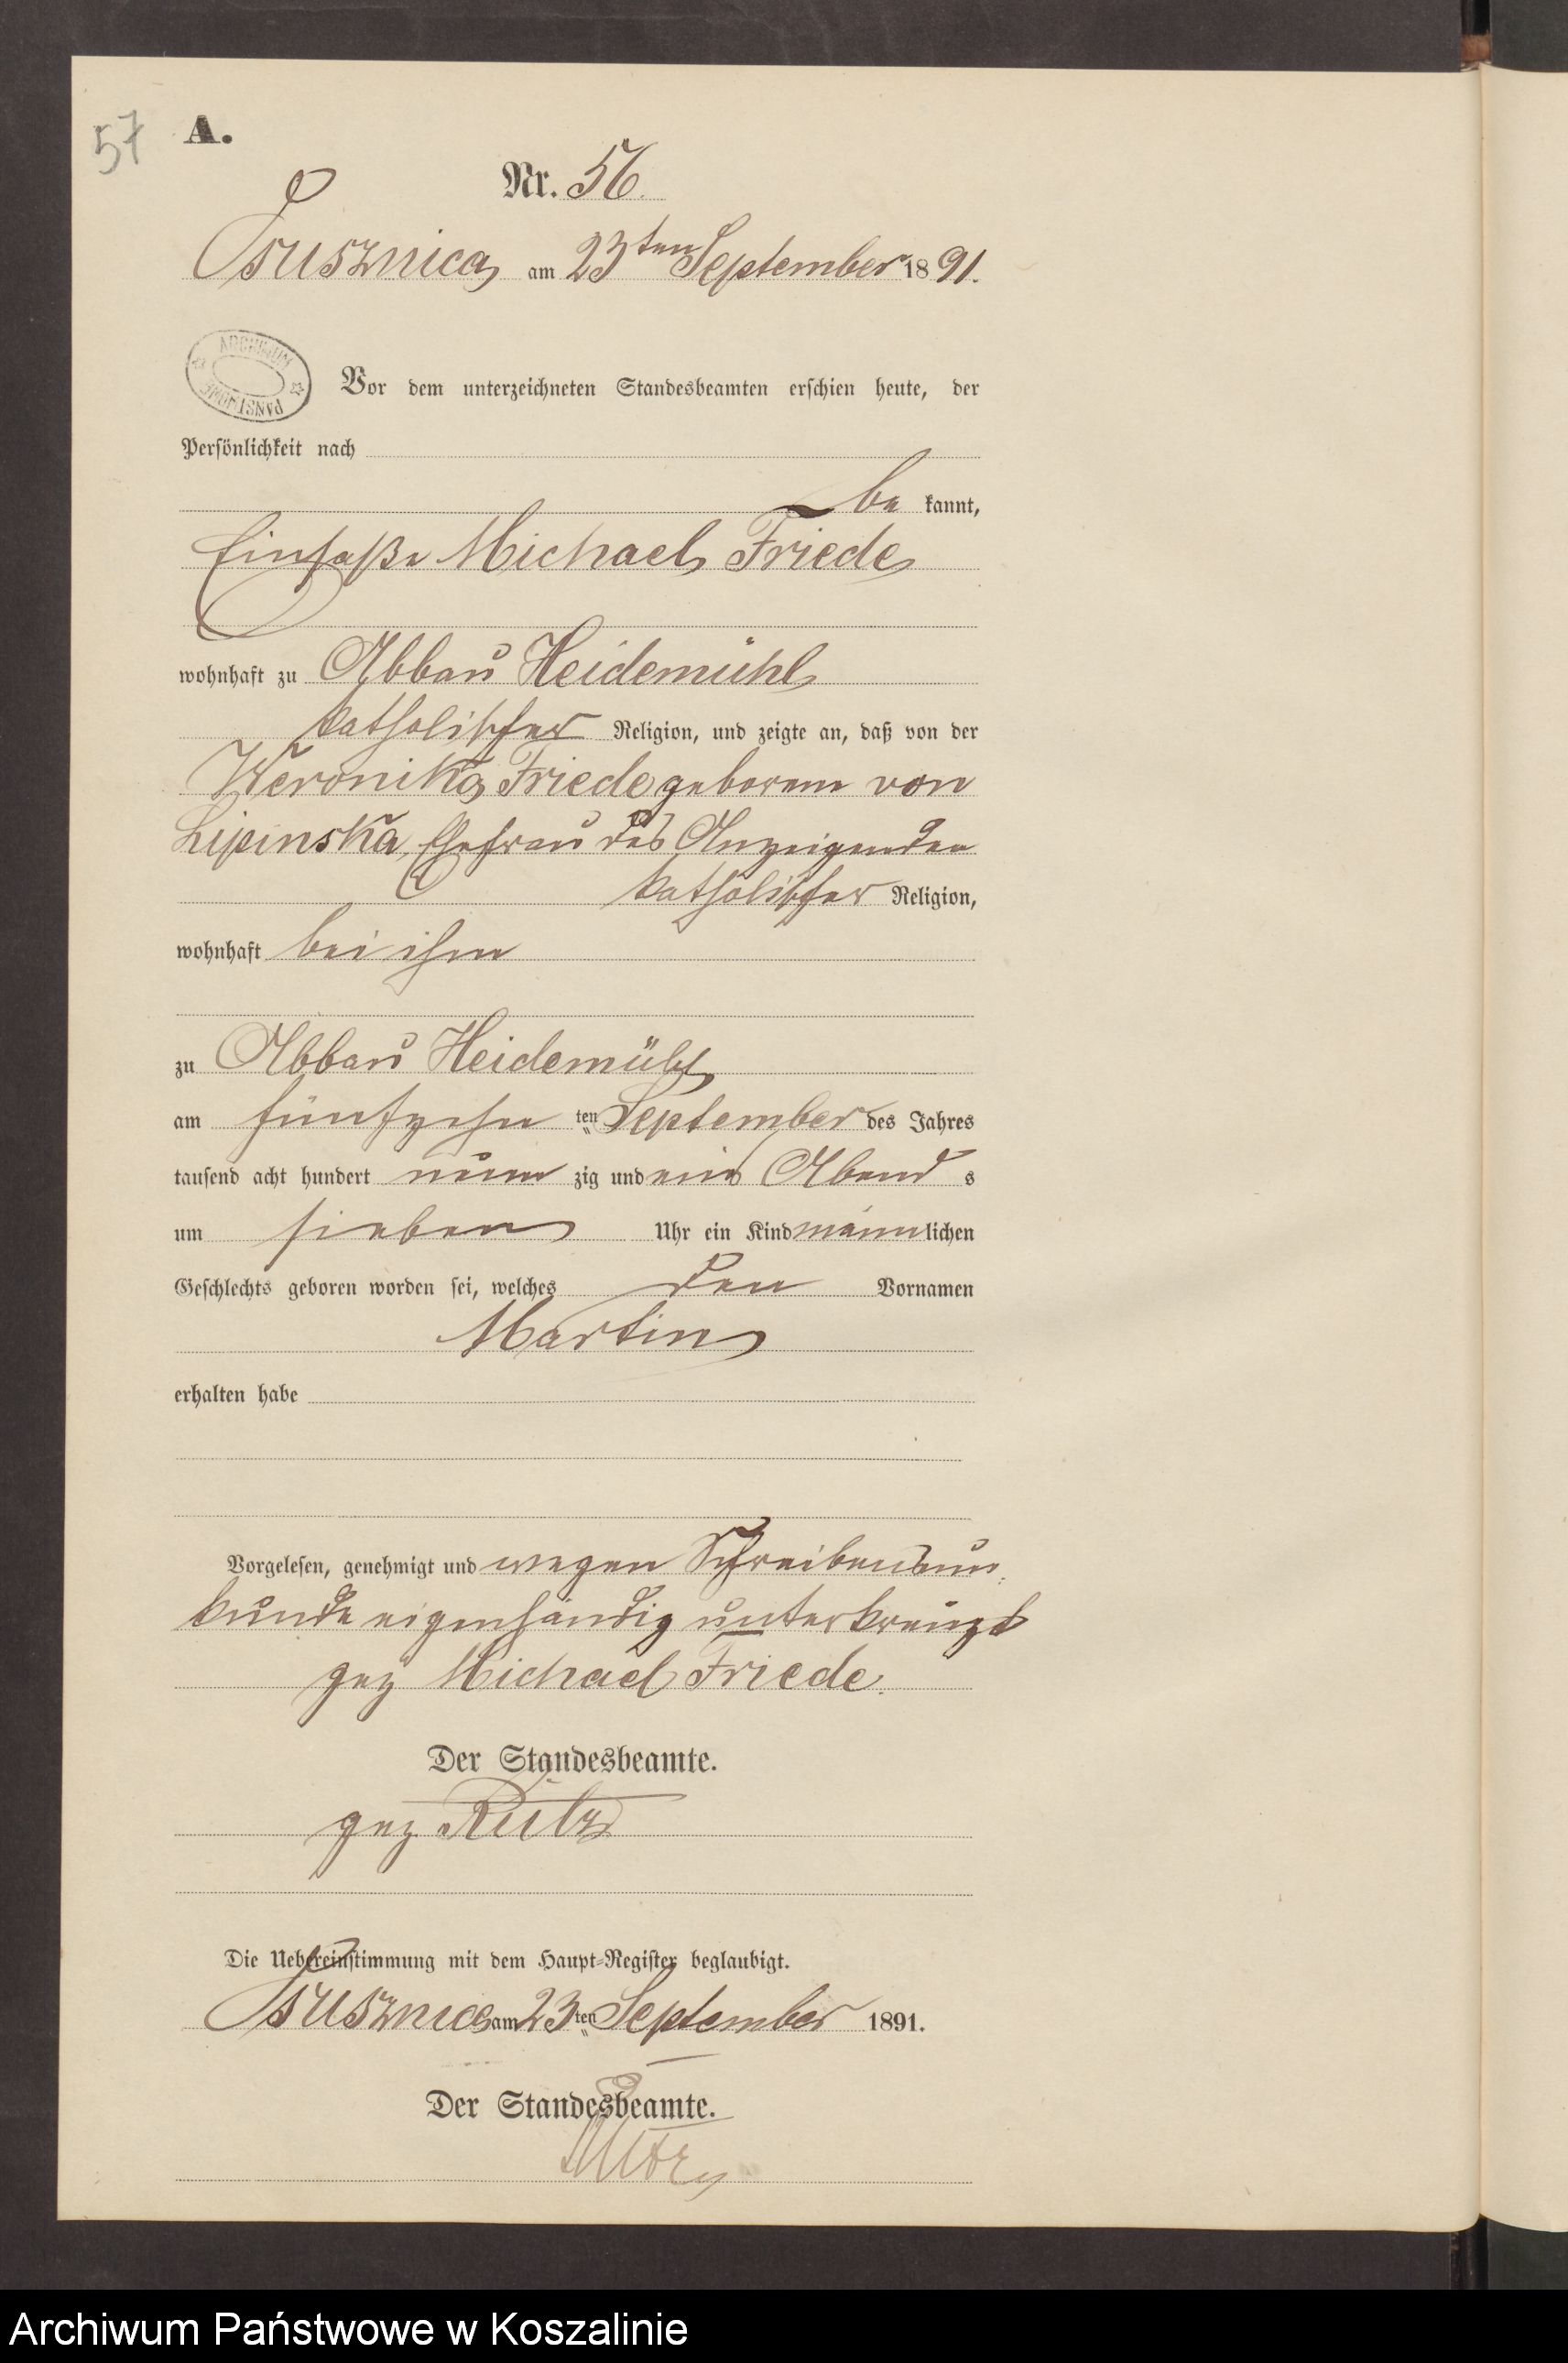 57 A.
Nr. 56.
Osusznica am 23ten September 1891.
ARCHIWUM PAŃSTWOWE
Vor dem unterzeichneten Standesbeamten erschien heute, der
Persönlichkeit nach
be kannt,
Einsaße Michael Friede
wohnhaft zu Abbau Heidemühl
katholischer Religion, und zeigte an, daß von der
Weronika Friede geborene von
Lipinska, Ehefrau des Anzeigenden
katholischer Religion,
wohnhaft bei ihm
zu Abbau Heidemühl
am fünfzehn ten September des Jahres
tausend acht hundert neun zig und ein Abend s
um sieben Uhr ein Kind männlichen
Geschlechts geboren worden sei, welches den Vornamen
Martin
erhalten habe
Vorgelesen, genehmigt und wegen Schreibensun-
kunde eigenhändig unterkreuzt
gez Michael Friede.
Der Standesbeamte.
gez Rutz
Die Uebereinstimmung mit dem Haupt-Register beglaubigt.
Osusznica am 23 ten September 1891.
Der Standesbeamte.
Rutz
Archiwum Państwowe w Koszalinie